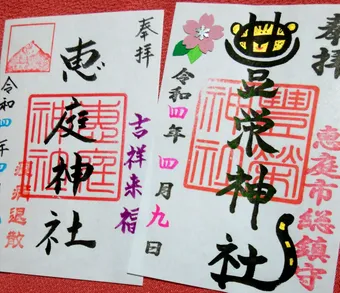 奉拝
恵庭神社
惠庭
神社
吉祥来福
令和四年四
退散
奉拝
豊栄神社
豐榮
神社
恵庭市総鎮守
令和四年四月九日